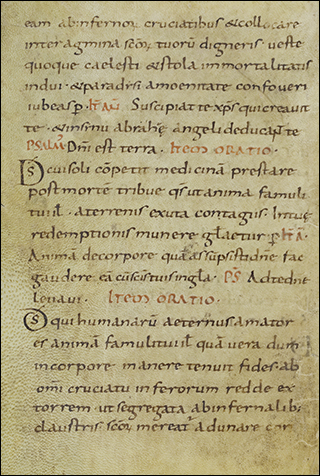 eam abinfernoꝝ cruciatibus & collocare
inter agmina sc̄oꝝ tuorū digneris ueste
quoque caelesti & stola inmortalitatis
indui · & paradisi amoenitate confoueri
iubeas p̄ · AN̄ Suscipiat te xp̄s qui creauit
te · & insinu abrahę angeli deducant te
PSALM̄ Dn̄i est terra · ITEM ORATIO ·
Ds̄ cui soli cōpetit medicinā prestare
post mortem tribue qs̄ ut anima famuli
tui ił · a terrenis exuta contagiis · Intuę
redemptionis munere
Anima de corpore quā assūpsisti dn̄e fac
gaudere cū sc̄is tuis in gła · PS̄ Ad te dn̄e
leuaui · ITEM ORATIO ·
Ds̄ qui humanarū aeternus amator
es animā famuli tui ił quā uera dum
in corpore manere tenuit fides · ab
om̄i cruciatu inferorum redde ex
torrem · ut segregata ab infernalib;
claustris · sc̄oꝝ mereat̄ adunare con